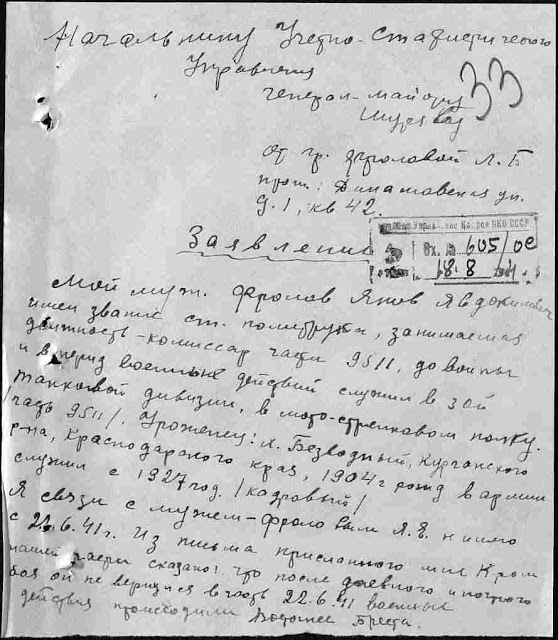 Начальнику Учетно-статистического
Управления
генерал-майору
33
от гр. Фроловой Л. Б
прож: Динамовская ул.
д. 1, кв 42.
Заявление
Управление Кадров НКО СССР
Вх. № 605/
18.8
Мой муж. Фролов Яков Явдокимович
имел звание ст. политрука, занимаемая
должность - комиссар части 9511, до войны
и в период военных действий служил в 30й
танковой дивизии, в мото-стрелковом полку.
/часть 9511/. Уроженец: х. Безводный, Курганского
р-на, Краснодарского края, 1904 г рожд в армии
служил с 1927 год. /кадровый/
Я связи с мужем - Фроловым Я. Я. не имею
с 22.6.41 г. Из письма присланного мне
части сказано: что после дневного и ночного
боя он не вернулся в часть 22.6.41 военные
действия происходили Бреста.